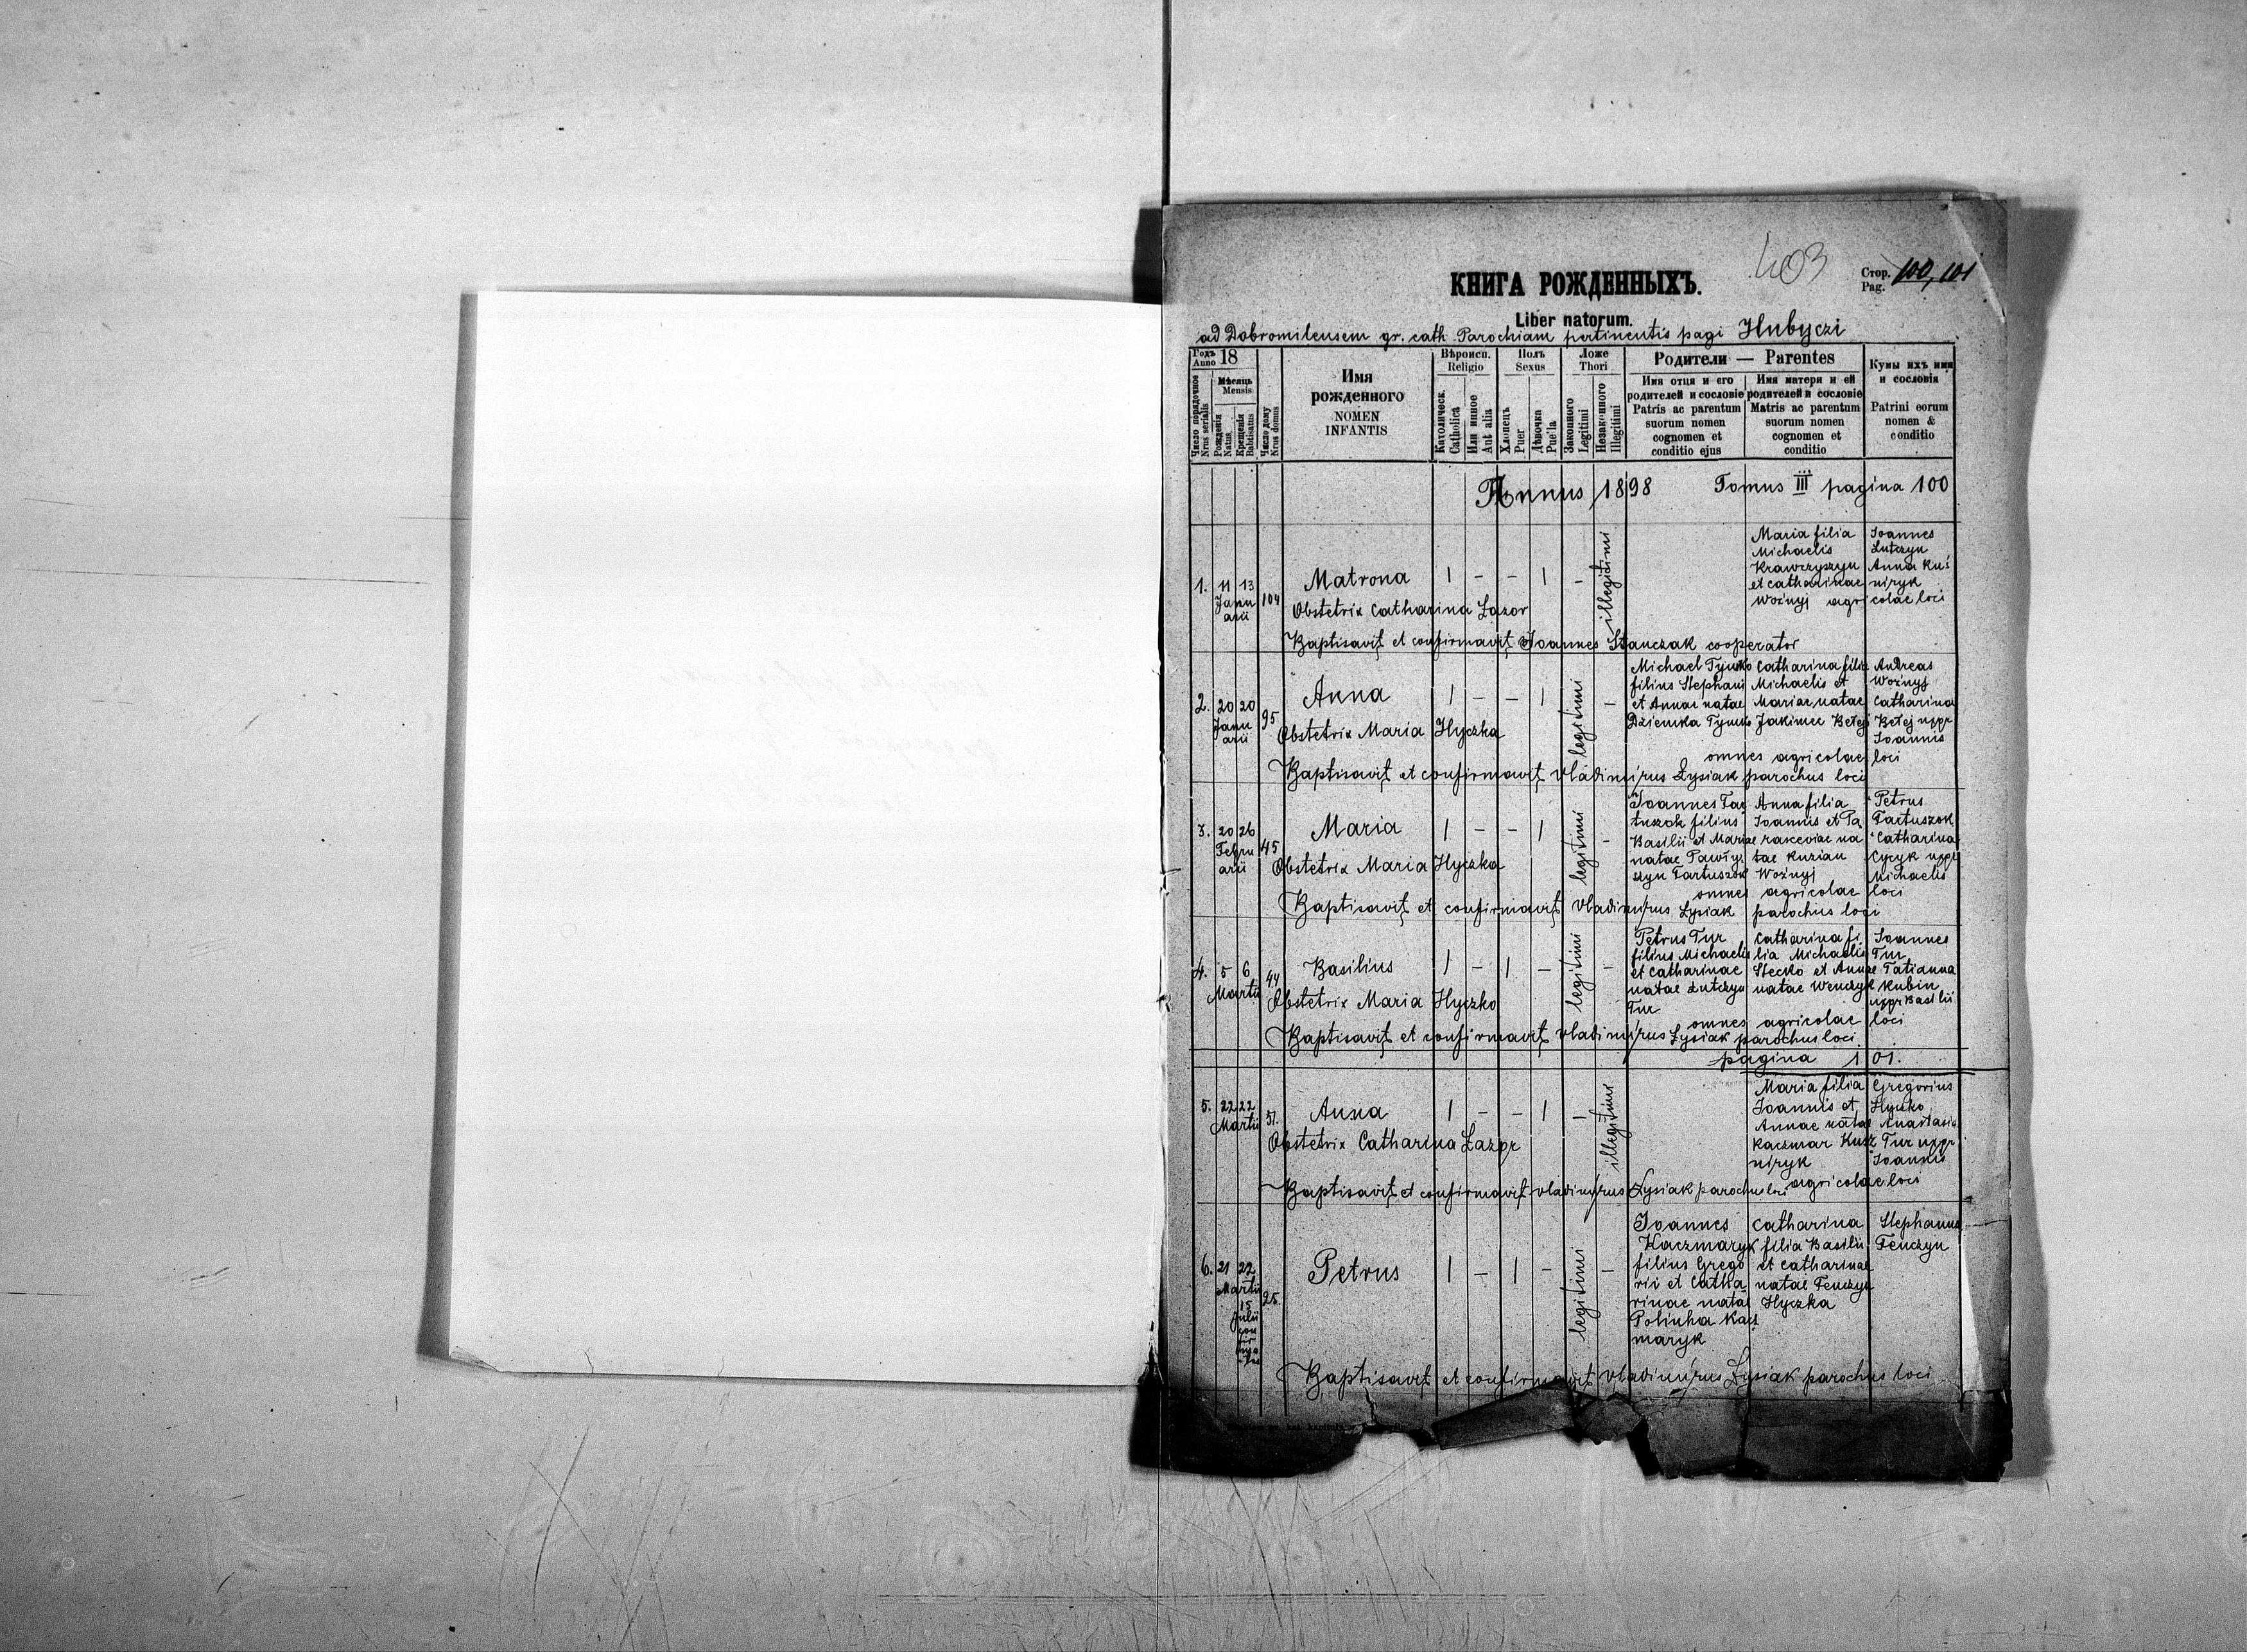 403
Стор. 100, 101
Pag.
КНИГА РОЖДЕННЫХЪ.
Liber natorum.
ad Dobromilensem gr. cath. Parochiam pertinentis pagi Hubyczi
Годъ 18
Anno
Мѣсяць
Mensis
Число порядочное
Nrus serialis
Рожденія
Natus
Крещенія
Babtisatus
Число дому
Nrus domus
Имя
рожденного
NOMEN
INFANTIS
Вѣроисп.
Religio
Католическ.
Catholica
Или инное
Aut alia
Полъ
Sexus
Хлопець
Puer
Дѣвочка
Puella
Ложе
Thori
Законного
Legitimi
Незаконного
Illegitimi
Родители — Parentes
Имя отця и его
родителей и сословіе
Patris ac parentum
suorum nomen
cognomen et
conditio ejus
Имя матери и ей
родителей и сословіе
Matris ac parentum
suorum nomen
cognomen et
conditio
Кумы ихъ имя
и сословія
Patrini eorum
nomen &
conditio
Annus 1898 Tomus III pagina 100
1. 11 13
Janu
arii
104
Matrona 1 - - 1 -
illegitimi
Obstetrix Catharina Lazor
Maria filia
Michaelis
Krawczyszyn
et Catharinae
Woźnyj
Joannes
Lutczyn
Anna Kuś
niryk
agricolae loci
Baptisavit et confirmavit Joannes Stanczak cooperator
2. 20 20
Janu
arii
95
Anna 1 - - 1
legitimi
-
Obstetrix Maria Hyczka
Michael Tymko
filius Stephani
et Annae natae
Dziemka Tymko
Catharina filia
Michaelis et
Mariae natae
Jakimec Betej
Andreas
Woźnyj
Catharina
Betej uxor
Joannis
omnes agricolae loci
Baptisavit et confirmavit Vladimirus Lysiak parochus loci
3. 20 26
Febru
arii
45
Maria 1 - - 1
legitimi
-
Obstetrix Maria Hyczka
Joannes Tar
tuszok filius
Basilii et Mariae
natae Pawły
szyn Tartuszok
Anna filia
Joannis et Pa
rasceviae na
tae Kuzian
Woźnyj
Petrus
Tartuszok
Catharina
Cycyk uxor
Michaelis
omnes agricolae loci
Baptisavit et confirmavit Vladimirus Lysiak parochus loci
4. 5 6
Martii
44
Basilius 1 - 1 -
legitimi
-
Obstetrix Maria Hyczko
Petrus Tur
filius Michaelis
et Catharinae
natae Lutczyn
Tur
Catharina fi
lia Michaelis
Stecko et Annae
natae Wenczyk
Joannes
Tur
Tatianna
Kubin
uxor Basilii
omnes agricolae loci
Baptisavit et confirmavit Vladimirus Lysiak parochus loci
pagina 101.
5. 22 22
Martii
51.
Anna 1 - - 1 -
illegitimi
Obstetrix Catharina Lazor
Maria filia
Joannis et
Annae natae
Kaczmar Kusz
niryk
Gregorius
Hyczko
Anastasia
Tur uxor
Joannis
agricolae loci
Baptisavit et confirmavit Vladimirus Lysiak parochus loci
6. 21 22
Martii
15
Julii
con
fir
ma
tus
25.
Petrus 1 - 1 -
legitimi
-
Joannes
Kaczmaryk
filius Grego
rii et Catha
rinae natae
Polinha Kacz
maryk
Catharina
filia Basilii
et Catharinae
natae Fenczyn
Hyczka
Stephanus
Fenczyn
Baptisavit et confirmavit Vladimirus Lysiak parochus loci